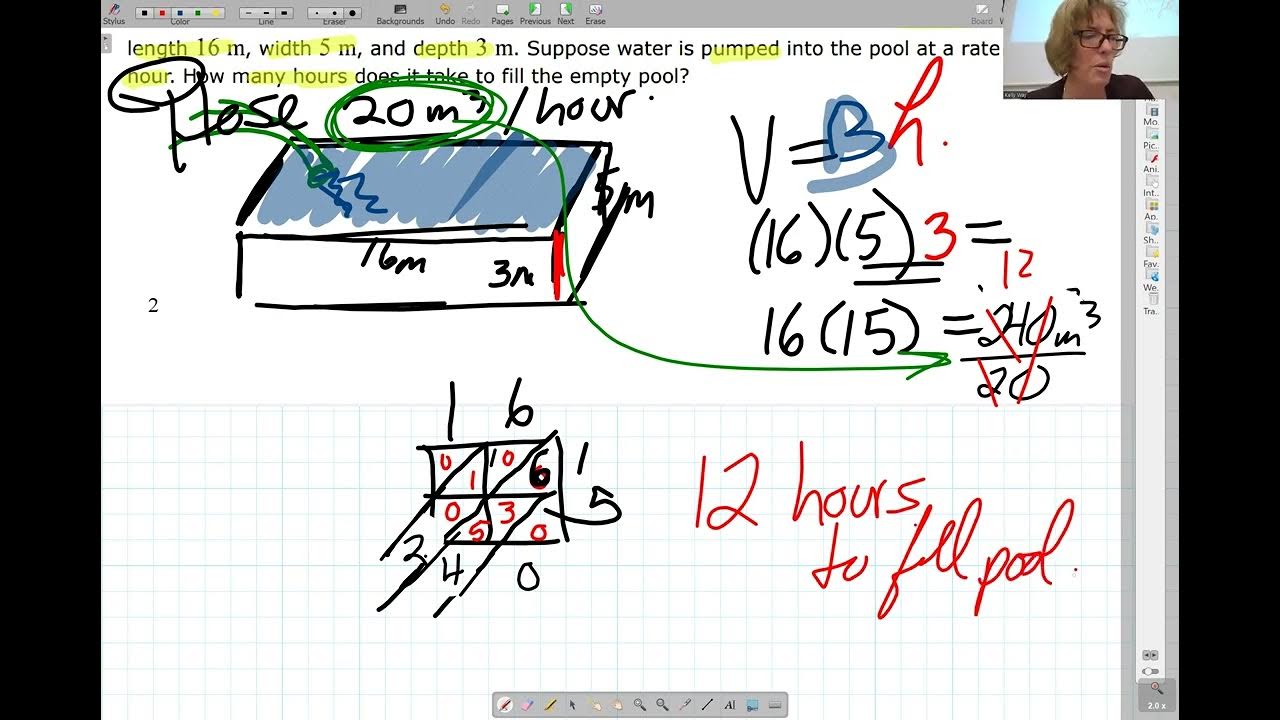 Stylus
Color
Line
Eraser
Backgrounds
Undo
Redo
Pages
Previous
Next
Erase
Board
length 16 m, width 5 m, and depth 3 m. Suppose water is pumped into the pool at a rate
hour. How many hours does it take to fill the empty pool?
Hose 20 m³ / hour.
V = Bh.
5m
16m
3m
(16)(5)3 =
12
16(15) = 240m³
20
2
1 6
0 1 0 6 1
0 5 3 0 5
2 4 0
12 hours
to fill pool.
Kelly Way
Mo..
Pic..
Ani..
Int..
Ap..
Sh..
Fav..
We..
Tra..
2.0 x